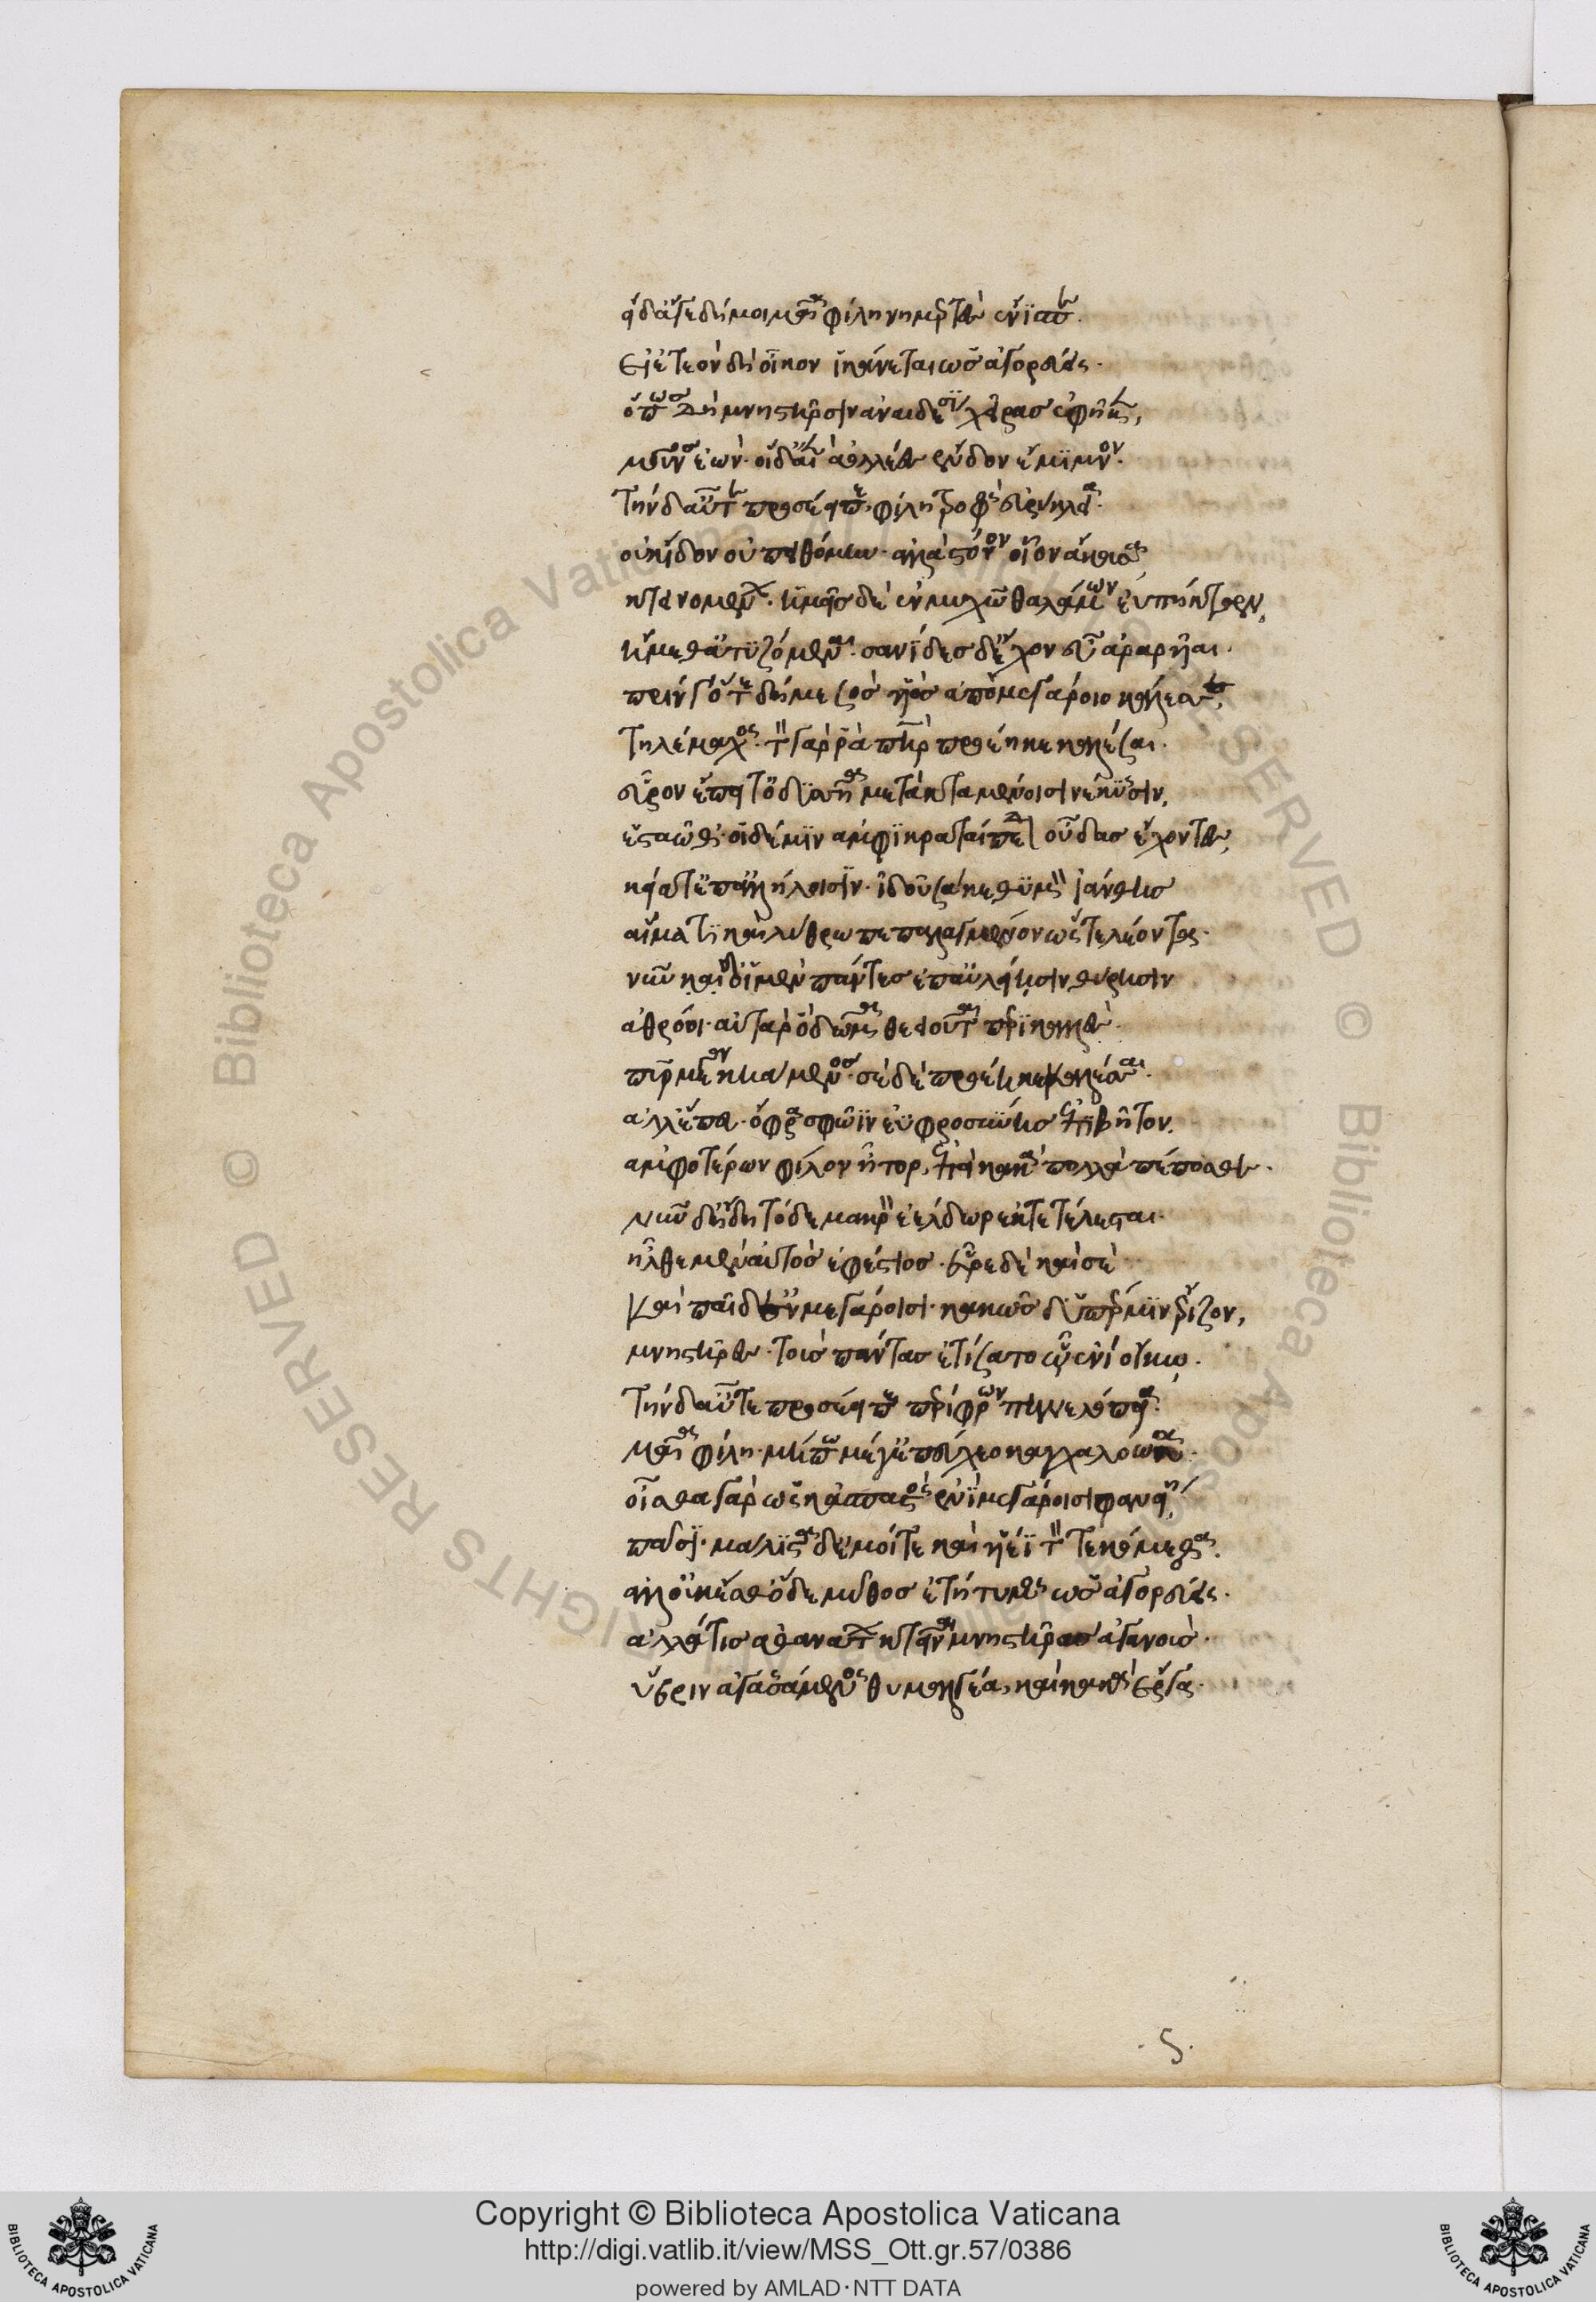 εἰ δ' ἄγε δή μοι μαῖα φίλη νημερτὲς ἐνίσπες
εἰ ἐτεὸν δὴ οἶκον ἱκάνεται ὡς ἀγορεύεις.
ὅππως δὴ μνηστῆρσιν ἀναιδέσι χεῖρας ἐφῆκε,
μοῦνος ἐών· οἱ δ' αἰὲν ἀολλέες ἔνδον ἔμιμνον.
τὴν δ' αὖτε προσέειπε φίλη τροφὸς εὐρύκλεια.
οὐκ ἴδον οὐ πυθόμην· ἀλλὰ στόνον οἶον ἄκουσα
κτεινομένων. ἡμεῖς δὲ ἐν μυχῷ θαλάμων εὐπήκτων,
ἥμεθ' ἀτυζόμεναι. σανίδες δ' ἔχον εὖ ἀραρυῖαι.
πρίν γ' ὅτε δή με σὸς υἱὸς ἀπὸ μεγάροιο κάλεσσε,
τηλέμαχος. τὸν γάρ ῥα πατὴρ προέηκε καλέσσαι.
εὗρον ἔπειτ' ὀδυσῆα μετὰ κταμένοισι νέκυσσιν,
ἑσταῶθ'. οἱ δέ μιν ἀμφὶ κραταίπεδον οὖδας ἔχοντες,
κείατ' ἐπ' ἀλλήλοισιν. ἰδοῦσά κε θυμὸν ἰάνθης
αἵματι καὶ λύθρω πεπαλαγμένον ὥστε λέοντα.
νῦν δ' οἱ μὲν δὴ πάντες ἐπ' αὐλείησι θύρησιν
ἀθρόοι. αὐτὰρ ὁ δῶμα θεειοῦται περικαλλὲς
πῦρ μέγα κηάμενος. σὲ δέ με προέηκε καλέσσαι.
ἀλλ' ἕπευ. ὄφρα σφῶιν ἐυφροσύνης ἐπιβῆτον.
ἀμφοτέρων φίλον ἦτορ, ἐπεὶ κακὰ πολλὰ πέποσθε.
νῦν δ' ἤδη τόδε μακρὸν ἐέλδωρ ἐκτετέλεσται.
ἦλθε μὲν αὐτὸς ἐφέστιος. εὗρε δὲ καὶ σὲ
καὶ παῖδ' ἐν μεγάροισι. κακῶς δ' οἵπερ μιν ἔρεζον,
μνηστῆρες. τοὺς πάντας ἐτίσατο ᾧ ἐνὶ οἴκῳ.
τὴν δ' αὖτε προσέειπε περίφρων πηνελόπεια.
μαῖα φίλη. μήπω μέγ' ἐπεύχεο καγχαλόωσα.
οἶσθα γὰρ ὥς κ' ἀσπαστὸς ἐνὶ μεγάροισι φανείη
πᾶσι. μάλιστα δ' ἐμοί τε καὶ υἱέι τὸν τεκόμεσθα.
ἀλλ' οὐκ ἔσθ' ὅδε μῦθος ἐτήτυμος ὡς ἀγορεύεις.
ἀλλά τις ἀθανάτων κτεῖνε μνηστῆρας ἀγαυοὺς.
ὕβριν ἀγασσάμενος θυμαλγέα, καὶ κακὰ ἔργα.
.ς.
Copyright © Biblioteca Apostolica Vaticana
http://digi.vatlib.it/view/MSS_Ott.gr.57/0386
powered by AMLAD·NTT DATA